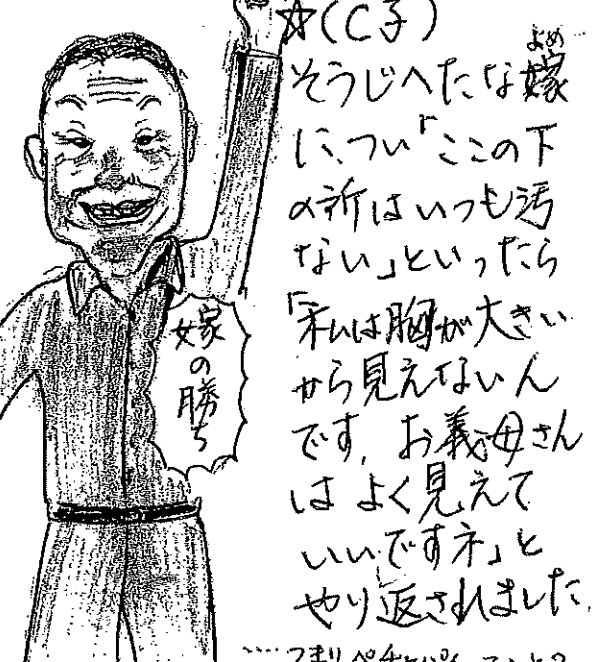 ☆(C子)
そうじへたな嫁
よめ
に、つい「ここの下
の所はいつも汚
ない」といったら
「私は胸が大きい
から見えないん
です。お義母さん
は よく見えて
いいですネ」と
やり返されました。
嫁の勝ち